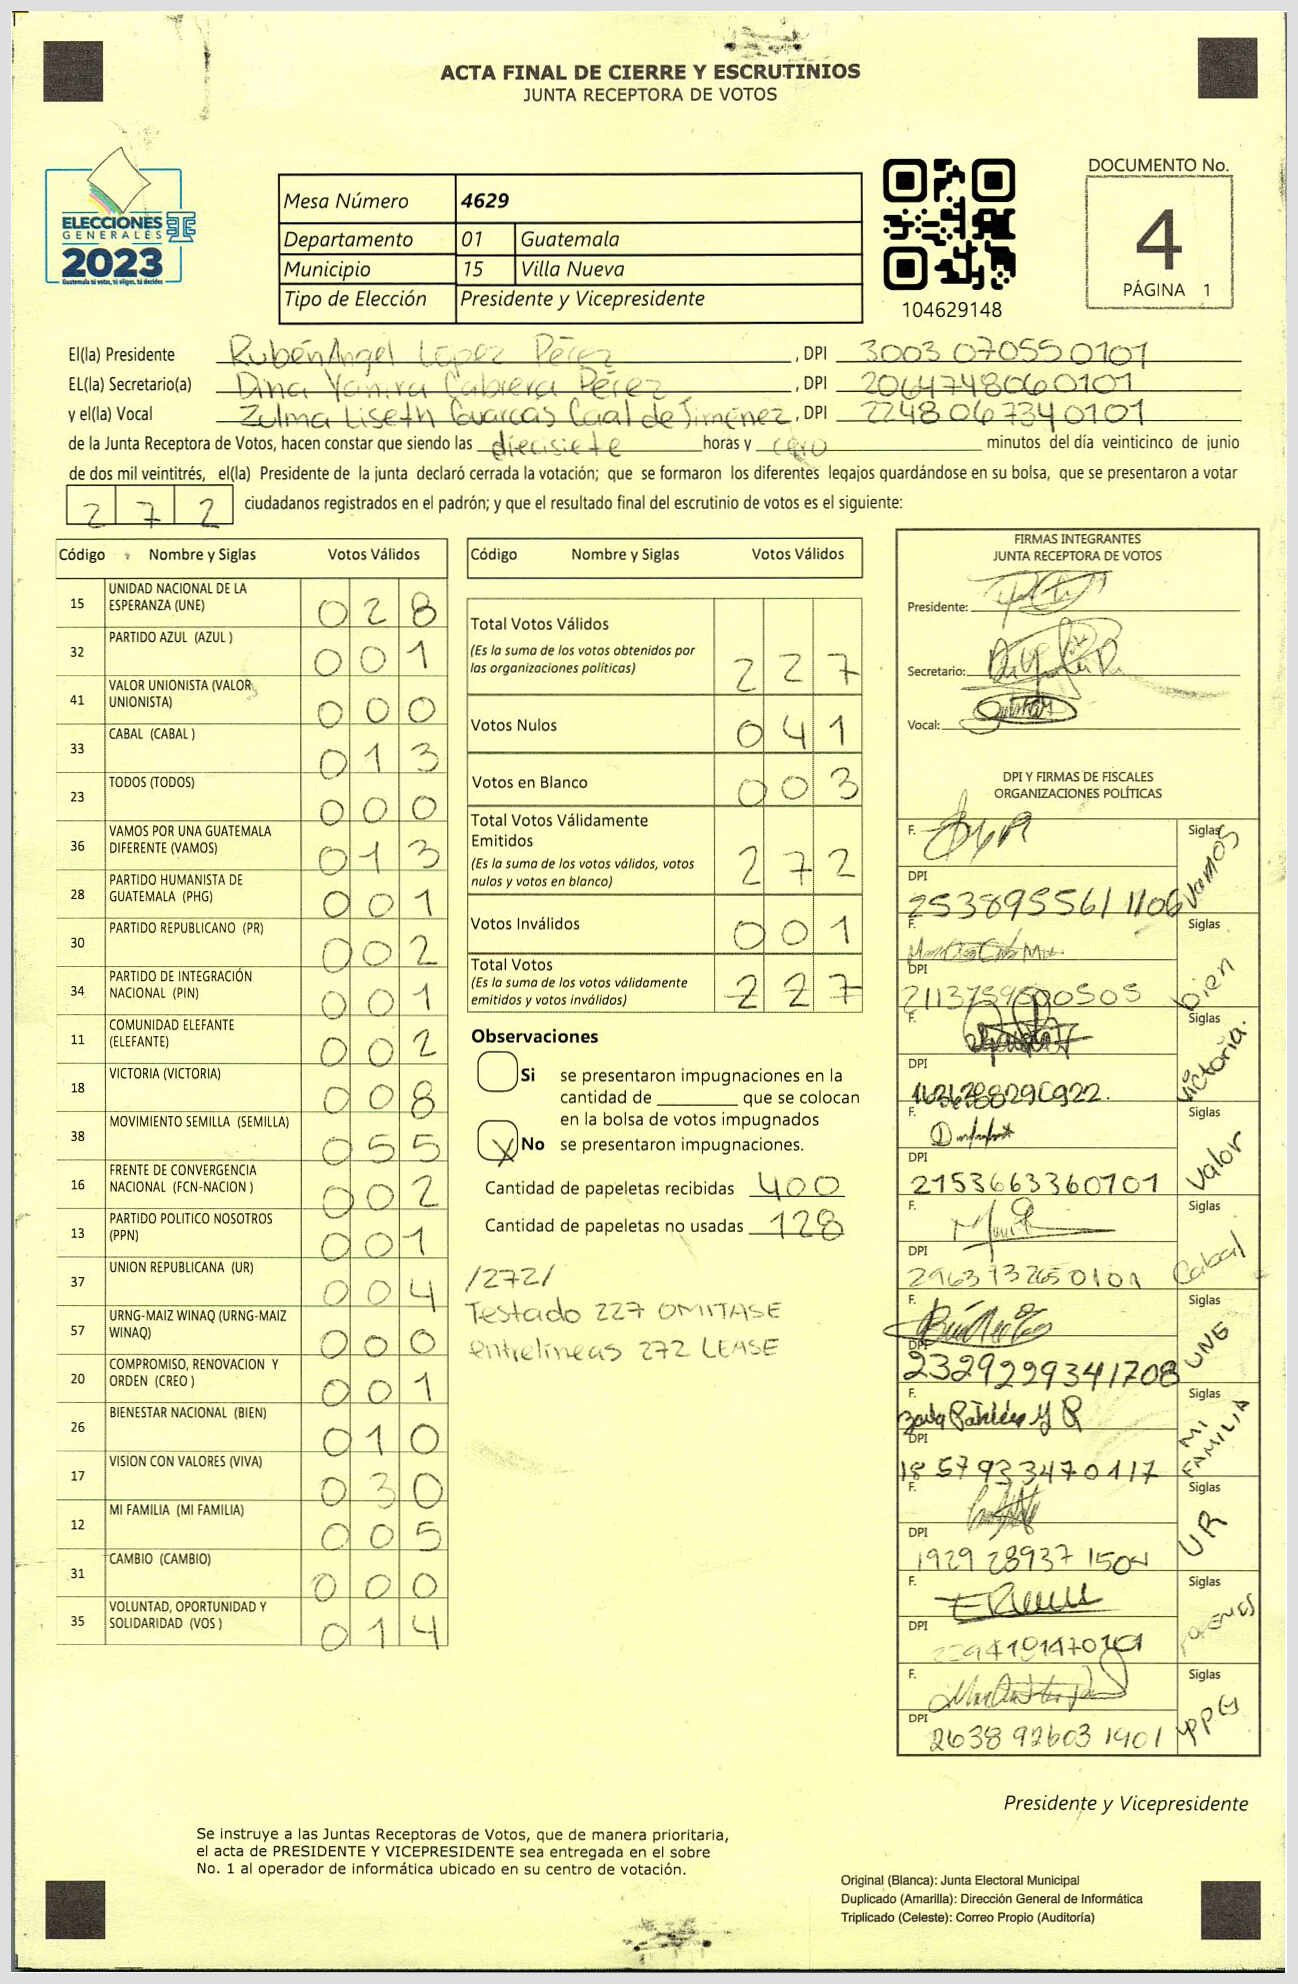 ACTA FINAL DE CIERRE Y ESCRUTINIOS
JUNTA RECEPTORA DE VOTOS
ELECCIONES
GENERALES
2023
Guatemala tú votas, tú eliges, tú decides
Mesa Número 4629
Departamento 01 Guatemala
Municipio 15 Villa Nueva
Tipo de Elección Presidente y Vicepresidente
104629148
DOCUMENTO No.
4
PÁGINA 1
El(la) Presidente Rubén Angel López Pérez, DPI 3003 07055 0101
EL(la) Secretario(a) Dina Yanira Cabrera Pérez, DPI 2064748060101
y el(la) Vocal Zulma Liseth Caal de Jiménez, DPI 2248067340101
de la Junta Receptora de Votos, hacen constar que siendo las diecisiete horas y cero minutos del día veinticinco de junio
de dos mil veintitrés, el(la) Presidente de la junta declaró cerrada la votación; que se formaron los diferentes legajos quardándose en su bolsa, que se presentaron a votar
272 ciudadanos registrados en el padrón; y que el resultado final del escrutinio de votos es el siguiente:
Código Nombre y Siglas Votos Válidos
15 UNIDAD NACIONAL DE LA ESPERANZA (UNE) 028
32 PARTIDO AZUL (AZUL ) 001
41 VALOR UNIONISTA (VALOR UNIONISTA) 000
33 CABAL (CABAL ) 013
23 TODOS (TODOS) 000
36 VAMOS POR UNA GUATEMALA DIFERENTE (VAMOS) 013
28 PARTIDO HUMANISTA DE GUATEMALA (PHG) 001
30 PARTIDO REPUBLICANO (PR) 002
34 PARTIDO DE INTEGRACIÓN NACIONAL (PIN) 001
11 COMUNIDAD ELEFANTE (ELEFANTE) 002
18 VICTORIA (VICTORIA) 008
38 MOVIMIENTO SEMILLA (SEMILLA) 055
16 FRENTE DE CONVERGENCIA NACIONAL (FCN-NACION ) 002
13 PARTIDO POLITICO NOSOTROS (PPN) 001
37 UNION REPUBLICANA (UR) 004
57 URNG-MAIZ WINAQ (URNG-MAIZ WINAQ) 000
20 COMPROMISO, RENOVACION Y ORDEN (CREO ) 001
26 BIENESTAR NACIONAL (BIEN) 010
17 VISION CON VALORES (VIVA) 030
12 MI FAMILIA (MI FAMILIA) 005
31 CAMBIO (CAMBIO) 000
35 VOLUNTAD, OPORTUNIDAD Y SOLIDARIDAD (VOS ) 014
Código Nombre y Siglas Votos Válidos
Total Votos Válidos
(Es la suma de los votos obtenidos por
las organizaciones políticas) 227
Votos Nulos 041
Votos en Blanco 003
Total Votos Válidamente
Emitidos
(Es la suma de los votos válidos, votos
nulos y votos en blanco) 272
Votos Inválidos 001
Total Votos
(Es la suma de los votos válidamente
emitidos y votos inválidos) 227
Observaciones
Si se presentaron impugnaciones en la
cantidad de ________ que se colocan
en la bolsa de votos impugnados
X No se presentaron impugnaciones.
Cantidad de papeletas recibidas 400
Cantidad de papeletas no usadas 128
/272/
Testado 227 OMITASE
entrelineas 272 LEASE
FIRMAS INTEGRANTES
JUNTA RECEPTORA DE VOTOS
Presidente:
Secretario:
Vocal:
DPI Y FIRMAS DE FISCALES
ORGANIZACIONES POLÍTICAS
F. Siglas Vamos
DPI 2538955611106
F. Siglas bien
DPI
F. Siglas Victoria.
DPI
F. Siglas Valor
DPI 2153663360101
F. Siglas Cabal
DPI 2963732650101
F. Siglas UNE
DPI 2329299341708
F. Siglas MI FAMILIA
DPI 1857933470117
F. Siglas UR
DPI 1929 28937 1504
F. Siglas
DPI
F. Siglas
DPI 2638 92603 1901
Presidente y Vicepresidente
Se instruye a las Juntas Receptoras de Votos, que de manera prioritaria,
el acta de PRESIDENTE Y VICEPRESIDENTE sea entregada en el sobre
No. 1 al operador de informática ubicado en su centro de votación.
Original (Blanca): Junta Electoral Municipal
Duplicado (Amarilla): Dirección General de Informática
Triplicado (Celeste): Correo Propio (Auditoría)